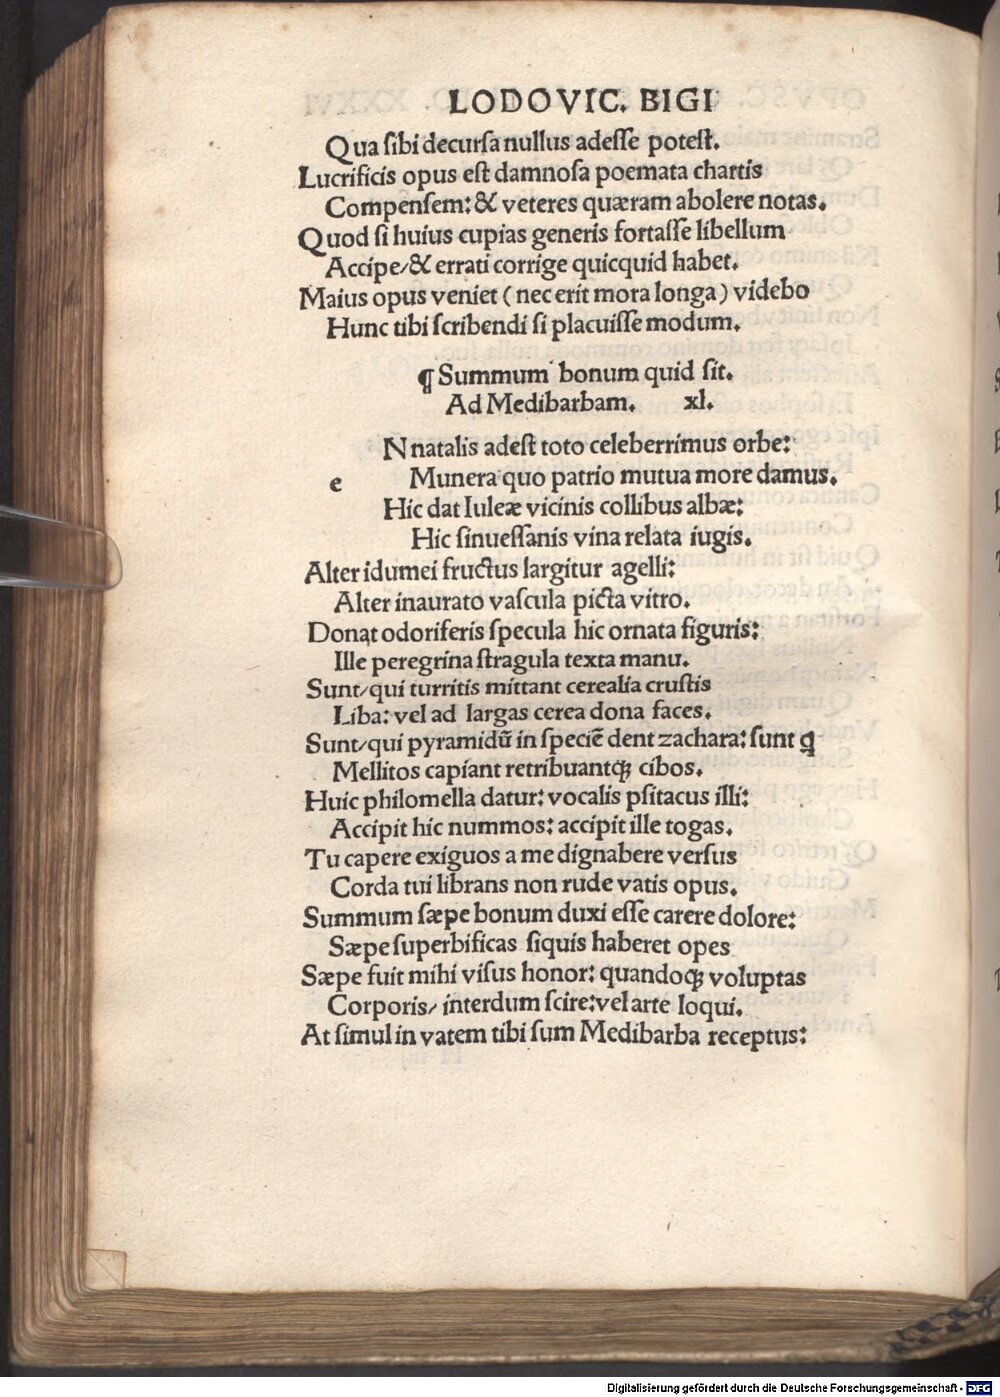 LODOVIC. BIGI
Qua sibi decursa nullus adesse potest.
Lucrificis opus est damnosa poemata chartis
Compensem: & veteres quæram abolere notas.
Quod si huius cupias generis fortasse libellum
Accipe/& errati corrige quicquid habet.
Maius opus veniet (nec erit mora longa) videbo
Hunc tibi scribendi si placuisse modum.
¶ Summum bonum quid sit.
Ad Medibarbam. xl.
N natalis adest toto celeberrimus orbe:
e Munera quo patrio mutua more damus.
Hic dat Iuleæ vicinis collibus albæ:
Hic sinuessanis vina relata iugis.
Alter idumei fructus largitur agelli:
Alter inaurato vascula picta vitro.
Donat odoriferis specula hic ornata figuris:
Ille peregrina stragula texta manu.
Sunt/qui turritis mittant cerealia crustis
Liba: vel ad largas cerea dona faces.
Sunt/qui pyramidũ in speciẽ dent zachara: sunt q̃
Mellitos capiant retribuantq; cibos.
Huic philomella datur: vocalis psitacus illi:
Accipit hic nummos: accipit ille togas.
Tu capere exiguos a me dignabere versus
Corda tui librans non rude vatis opus.
Summum sæpe bonum duxi esse carere dolore:
Sæpe superbificas siquis haberet opes
Sæpe fuit mihi visus honor: quandoq; voluptas
Corporis/ interdum scire: vel arte loqui.
At simul in vatem tibi sum Medibarba receptus:
Digitalisierung gefördert durch die Deutsche Forschungsgemeinschaft - DFG